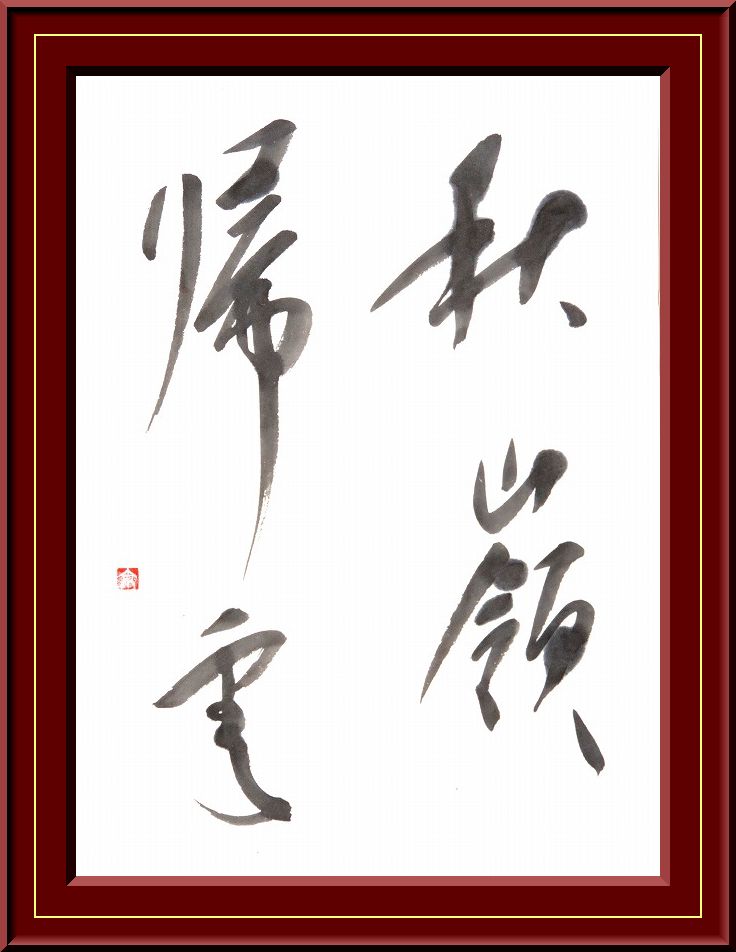 秋嶺
帰雲